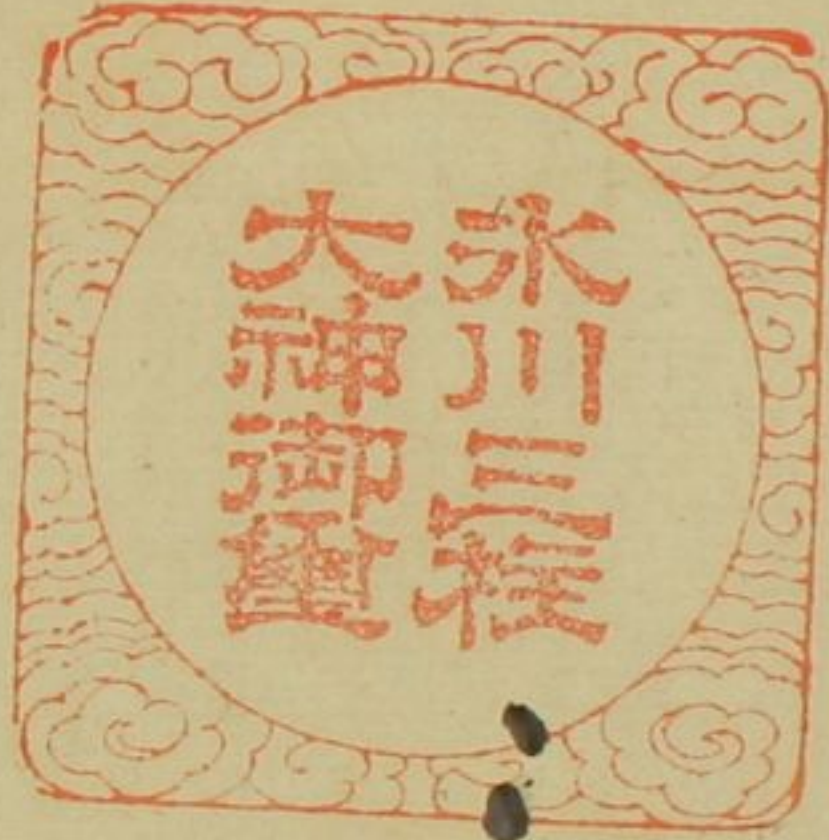 氷川三柱
大神御璽